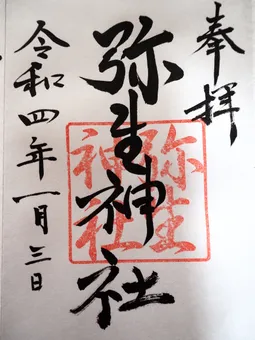 奉拝
弥生神社
弥生
神社
令和四年一月三日